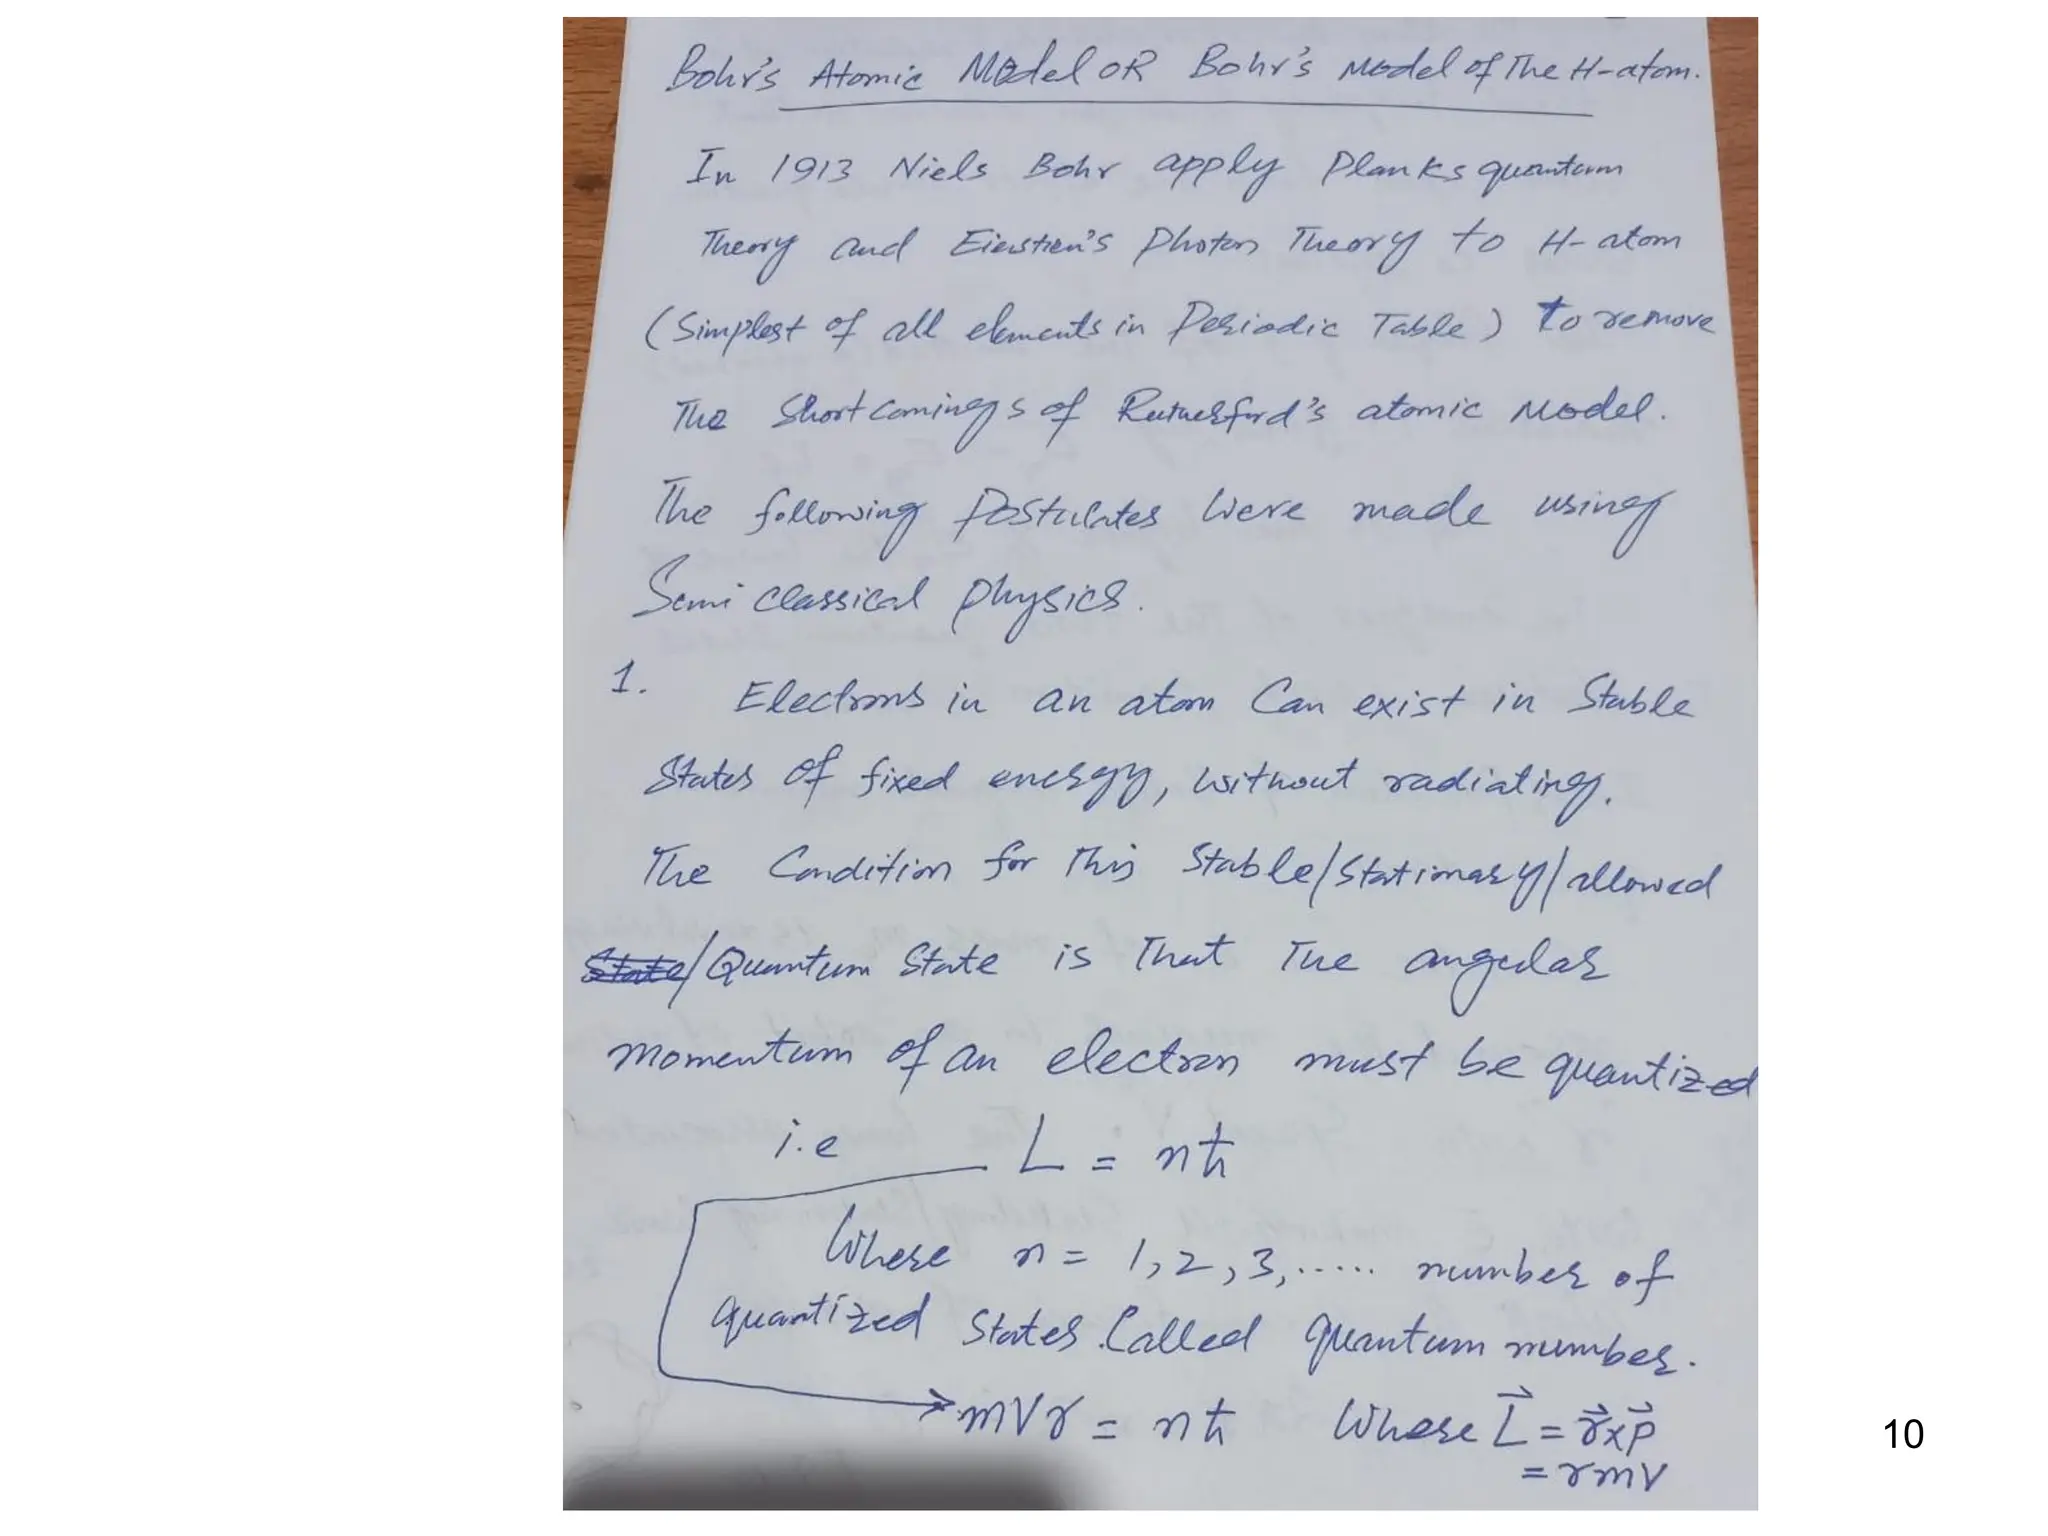 Bohr's Atomic Model OR Bohr's Model of The H-atom.
In 1913 Niels Bohr apply Planks quantum
Theory and Einstien's Photon Theory to H-atom
(Simplest of all elements in Periodic Table) to remove
The Shortcomings of Rutherford's atomic Model.
The following Postulates were made using
Semi classical physics.
1. Electrons in an atom Can exist in Stable
States of fixed energy, without radiating.
The Condition for This Stable/Stationary/allowed
State/Quantum State is That The angular
momentum of an electron must be quantized
i.e L = nħ
Where n = 1,2,3,..... number of
quantized States. Called quantum number.
mvr = nħ Where L⃗ = r⃗xp⃗
= rmv
10